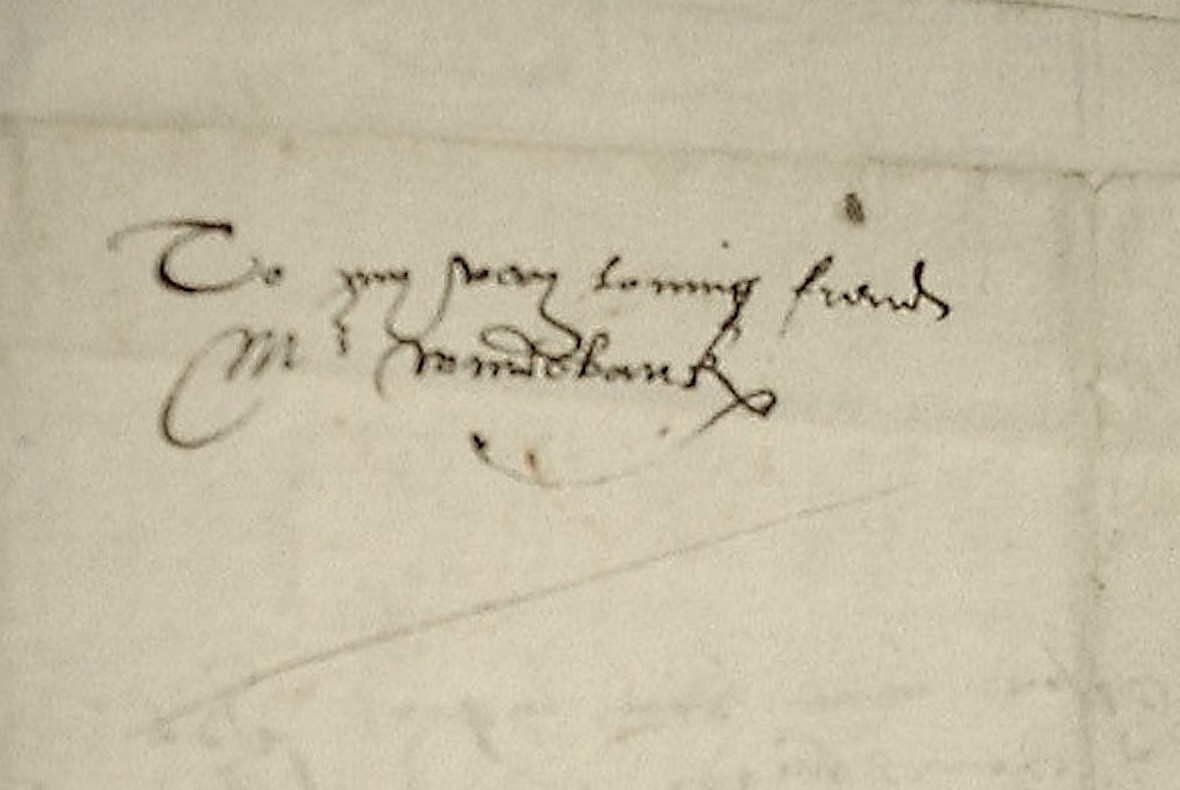 To my very louing frend
Mr windebank